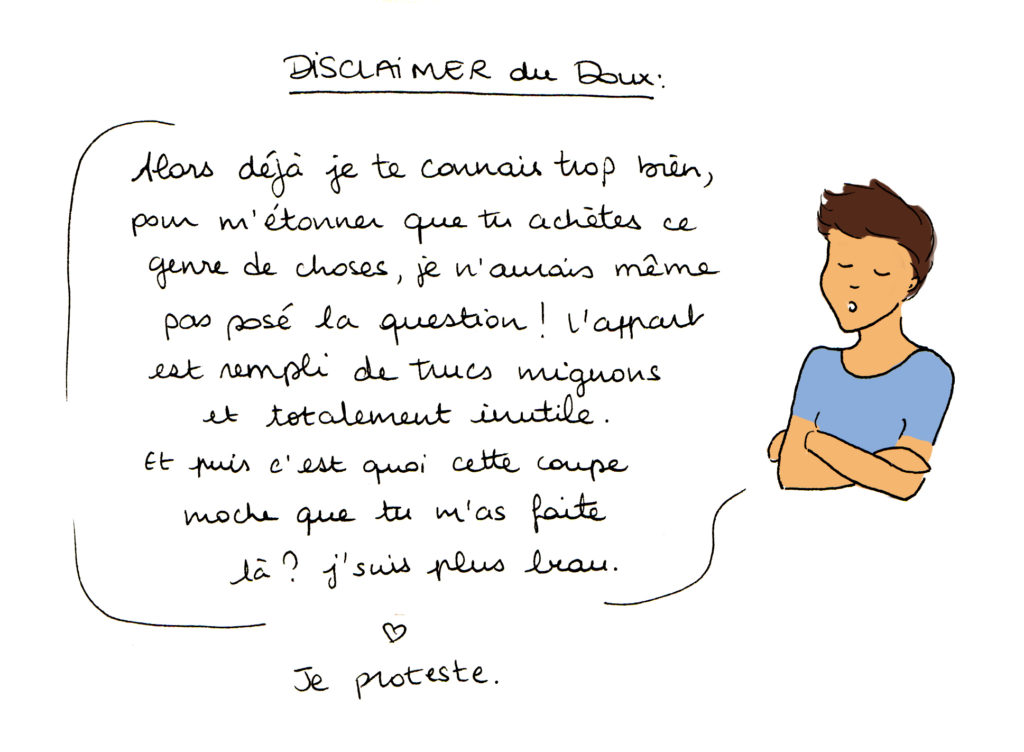 DiSCLAiMER du Doux:
Alors déjà je te connais trop bien,
pour m'étonner que tu achètes ce
genre de choses, je n'aurais même
pas posé la question! l'appart
est rempli de trucs mignons
et totalement inutile.
Et puis c'est quoi cette coupe
moche que tu m'as faite
là? j'suis plus beau.
Je proteste.